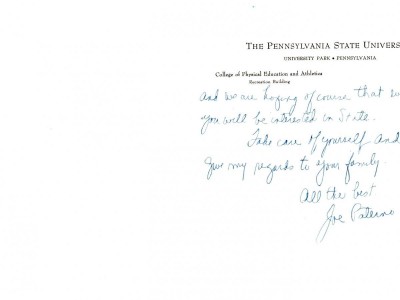 THE PENNSYLVANIA STATE UNIVERS
UNIVERSITY PARK • PENNSYLVANIA
College of Physical Education and Athletics
Recreation Building
And we are hoping of course that
you will be interested in State.
Take care of yourself and
give my regards to your family.
All the best
Joe Paterno